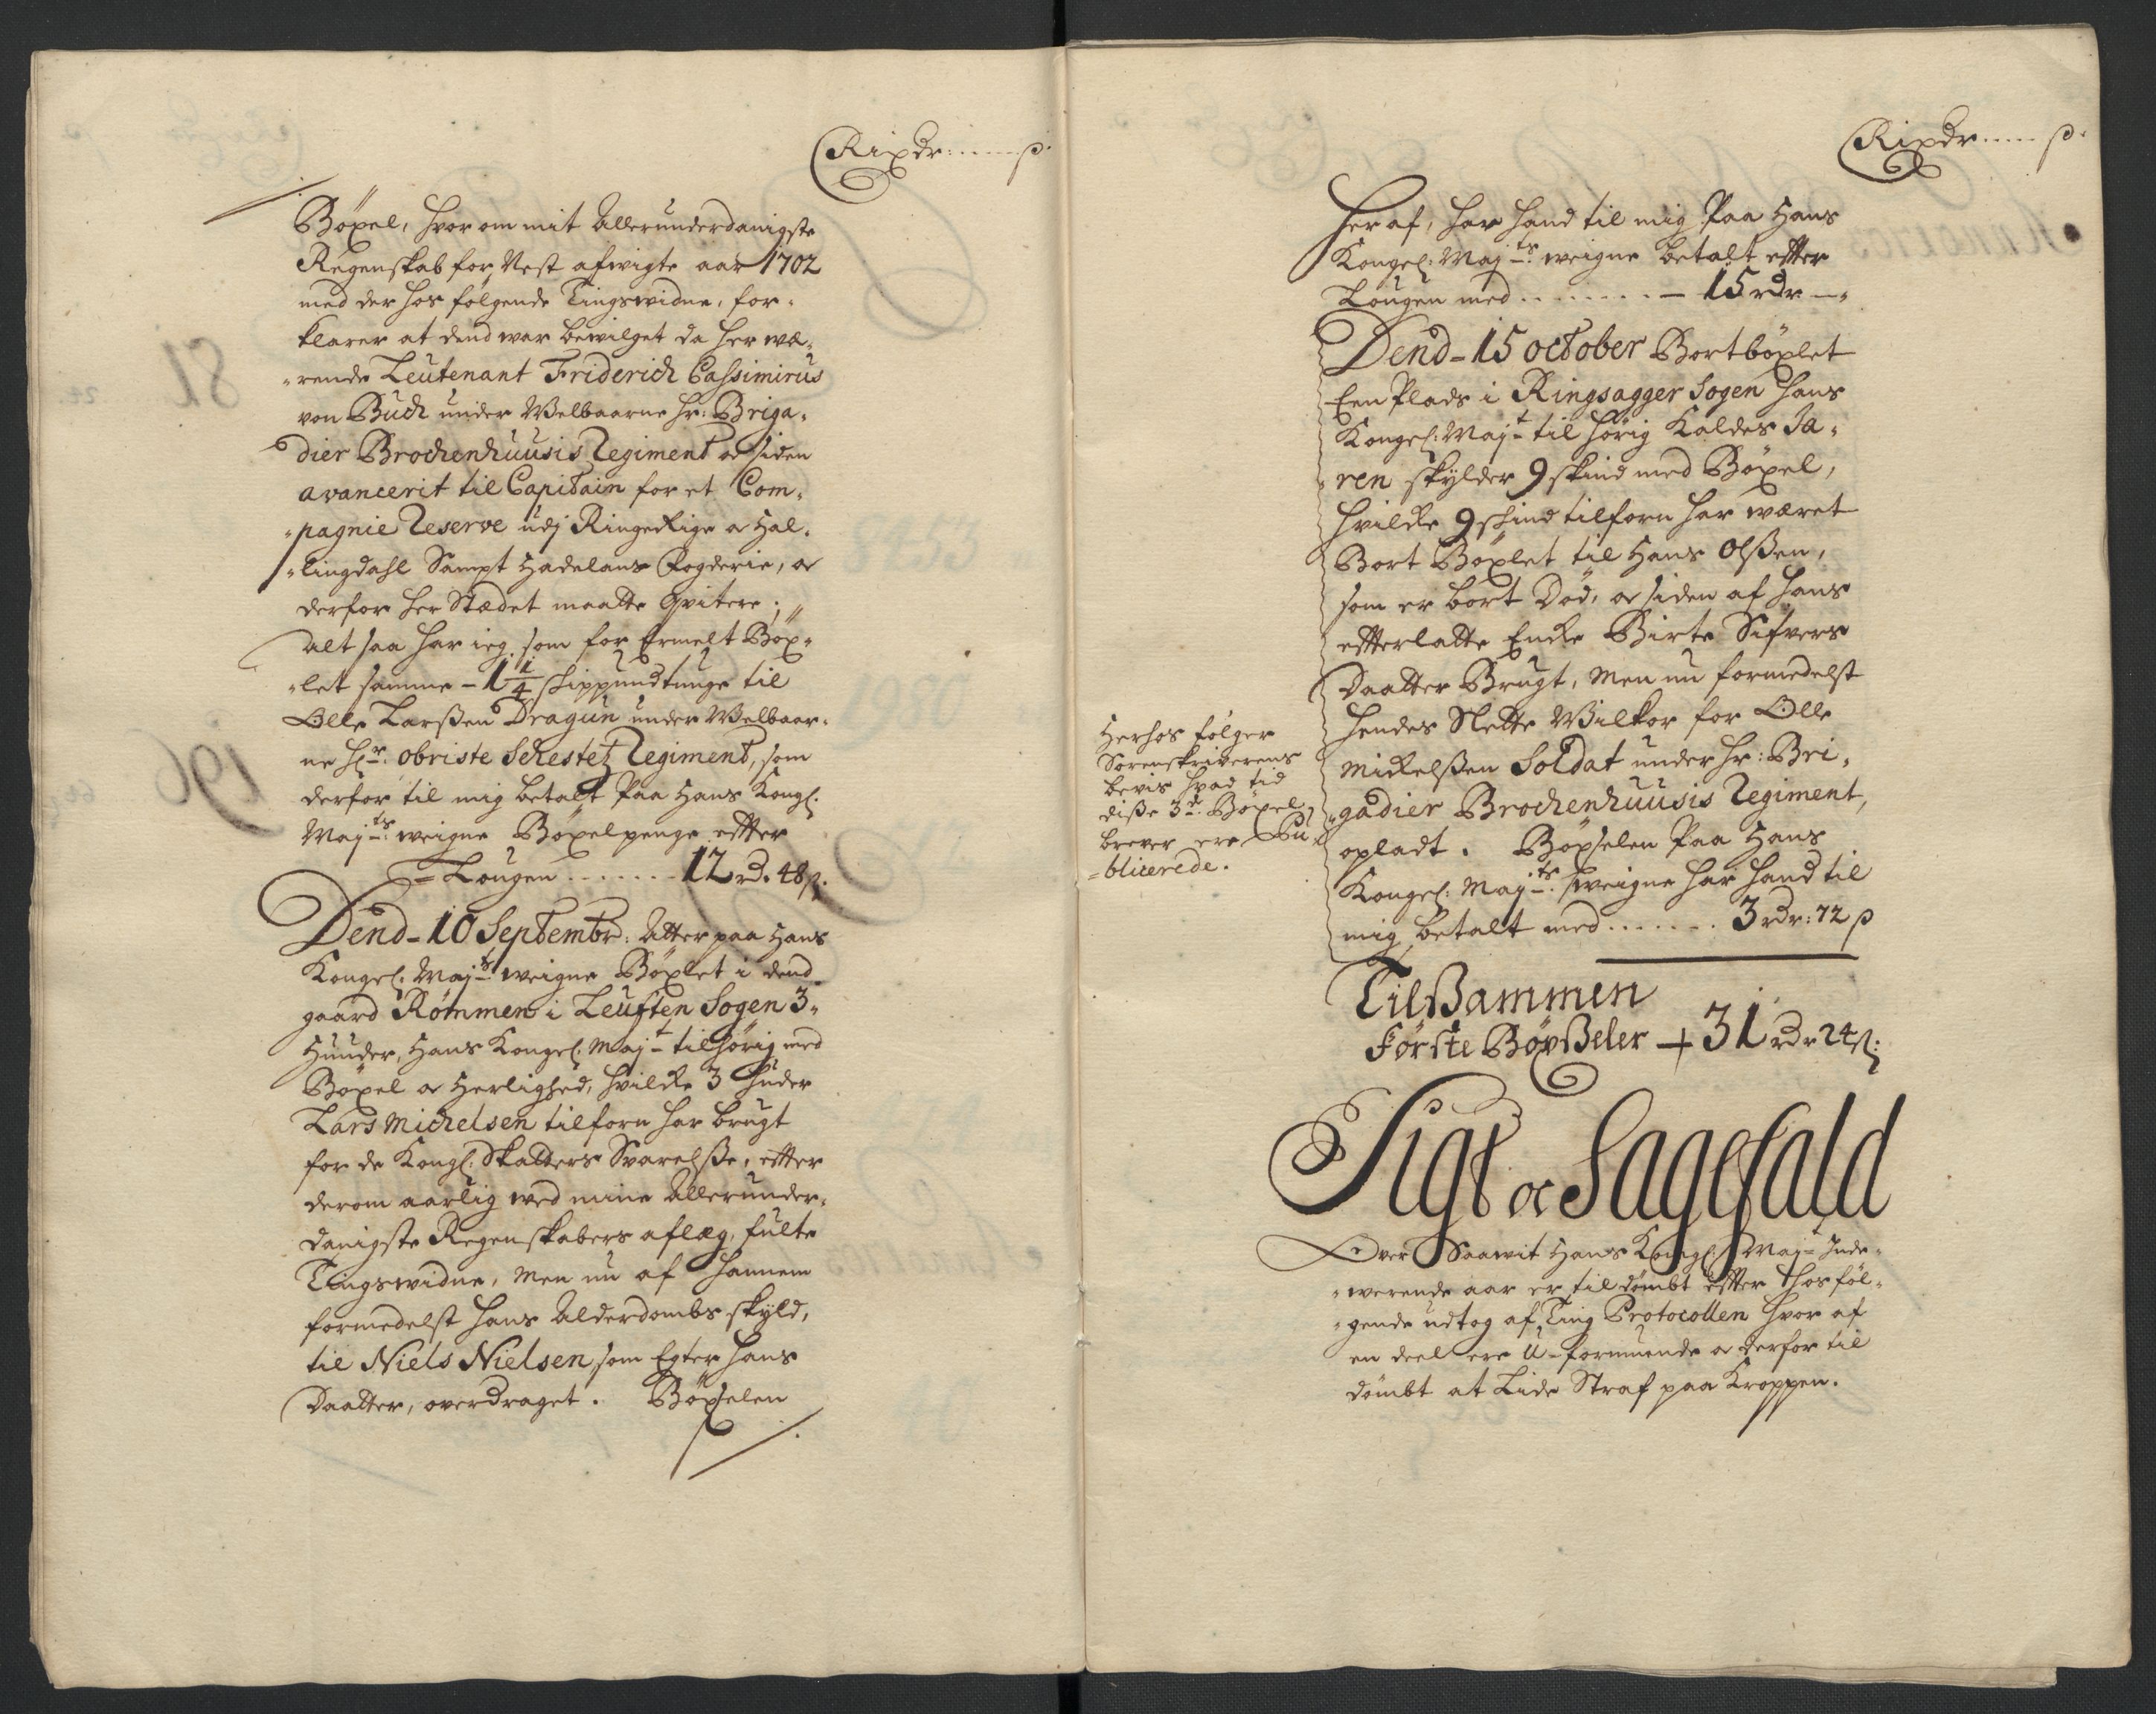 Rixdr ..... ß.
Böxel, hvor om mit Allerunderdanigste
Regenskab for Nest afvigte aar 1702
med der hos følgende Tingswidne, for-
klarer at dend war bewilget da her wæ-
-rende Leutenant Friderich Cassimirus
von Buch under Welbaarne Hr: Briga-
dier Brochenhuusis Regiment oc siden
avancerit til Capitain for et Com-
-pagnie Reserve udj Ringerige oc Hal-
-lingdahl Sampt Hadelans Fogderie, oc
derfor her Stædet maatte qvitere;
Alt saa har ieg som for Ermelt Böx-
-let samme - 1 1/4 skippundtunge til
Olle Larßen Dragun under Welbaar-
ne Hr: Obriste Schestetz Regiment, som
derfor til mig betalt Paa Hans Kongl:
Majts: weigne Böxelpenge effter
= Lougen ....... 12 rd. 48 ß.
Dend - 10 Septembr: Atter paa Hans
Kongel: Majts: weigne Böxlet i dend
gaard Römmen i Leuften Sogen 3-
Huuder, Hans Kongel: Majt tilhörig med
Böxel oc Herlighed, hvilke 3 Huder
Lars Michelsen tilforn har brugt
for de Kongl: Skatters Svarelße, effter
derom aarlig wed mine Allerunder-
danigste Regenskabers aflæg, fulte
Tingswidne, Men nu af hannem
formedelst hans Alderdombs skyld,
til Niels Nielsen, som Egter hans
Daatter, overdraget. Böxselen
Rixdr ..... ß.
Her af, har hand til mig Paa Hans
Kongel: Majts: weigne betalt effter
Lougen med ........ - 15 rdr -
Dend - 15 October Bortböxlet
Een Plads i Ringsagger Sogen Hans
Kongel: Majt til hörig Kaldes Ja-
-ren skylder 9 skind med Böxel,
Hvilke 9 skind tilforn har wæret
Bort Böxlet til Hans Olßen,
som er bort Död, oc siden af hans
effterlatte Encke Birte Sifvers
Daatter Brugt, Men nu formedelst
hendes Slette Wilkor for Olle
Mickelßen Soldat under Hr: Bri-
-gadier Brochenhuusis Regiment,
opladt. Böxselen Paa Hans
Kongel: Majts: weigne har hand til
mig betalt med ....... 3 rdr: 72 ß
Herhos følger
Sorenskriverens
bevis hvad tid
diße 3de: Böxel
brever ere Pu-
=blicerede.
Tilßammen
Förste Böxßeler + 31 rdr 24 ß:
Sigt oc Sagefald
Over Saawit Hans Kongl: Majt Inde-
-werende aar er tildömbt effter hosföl-
-gende udtog af Ting Protocollen hvor af
en deel ere U-formuende oc derfor til
dömbt at Lide Straf paa Kroppen.